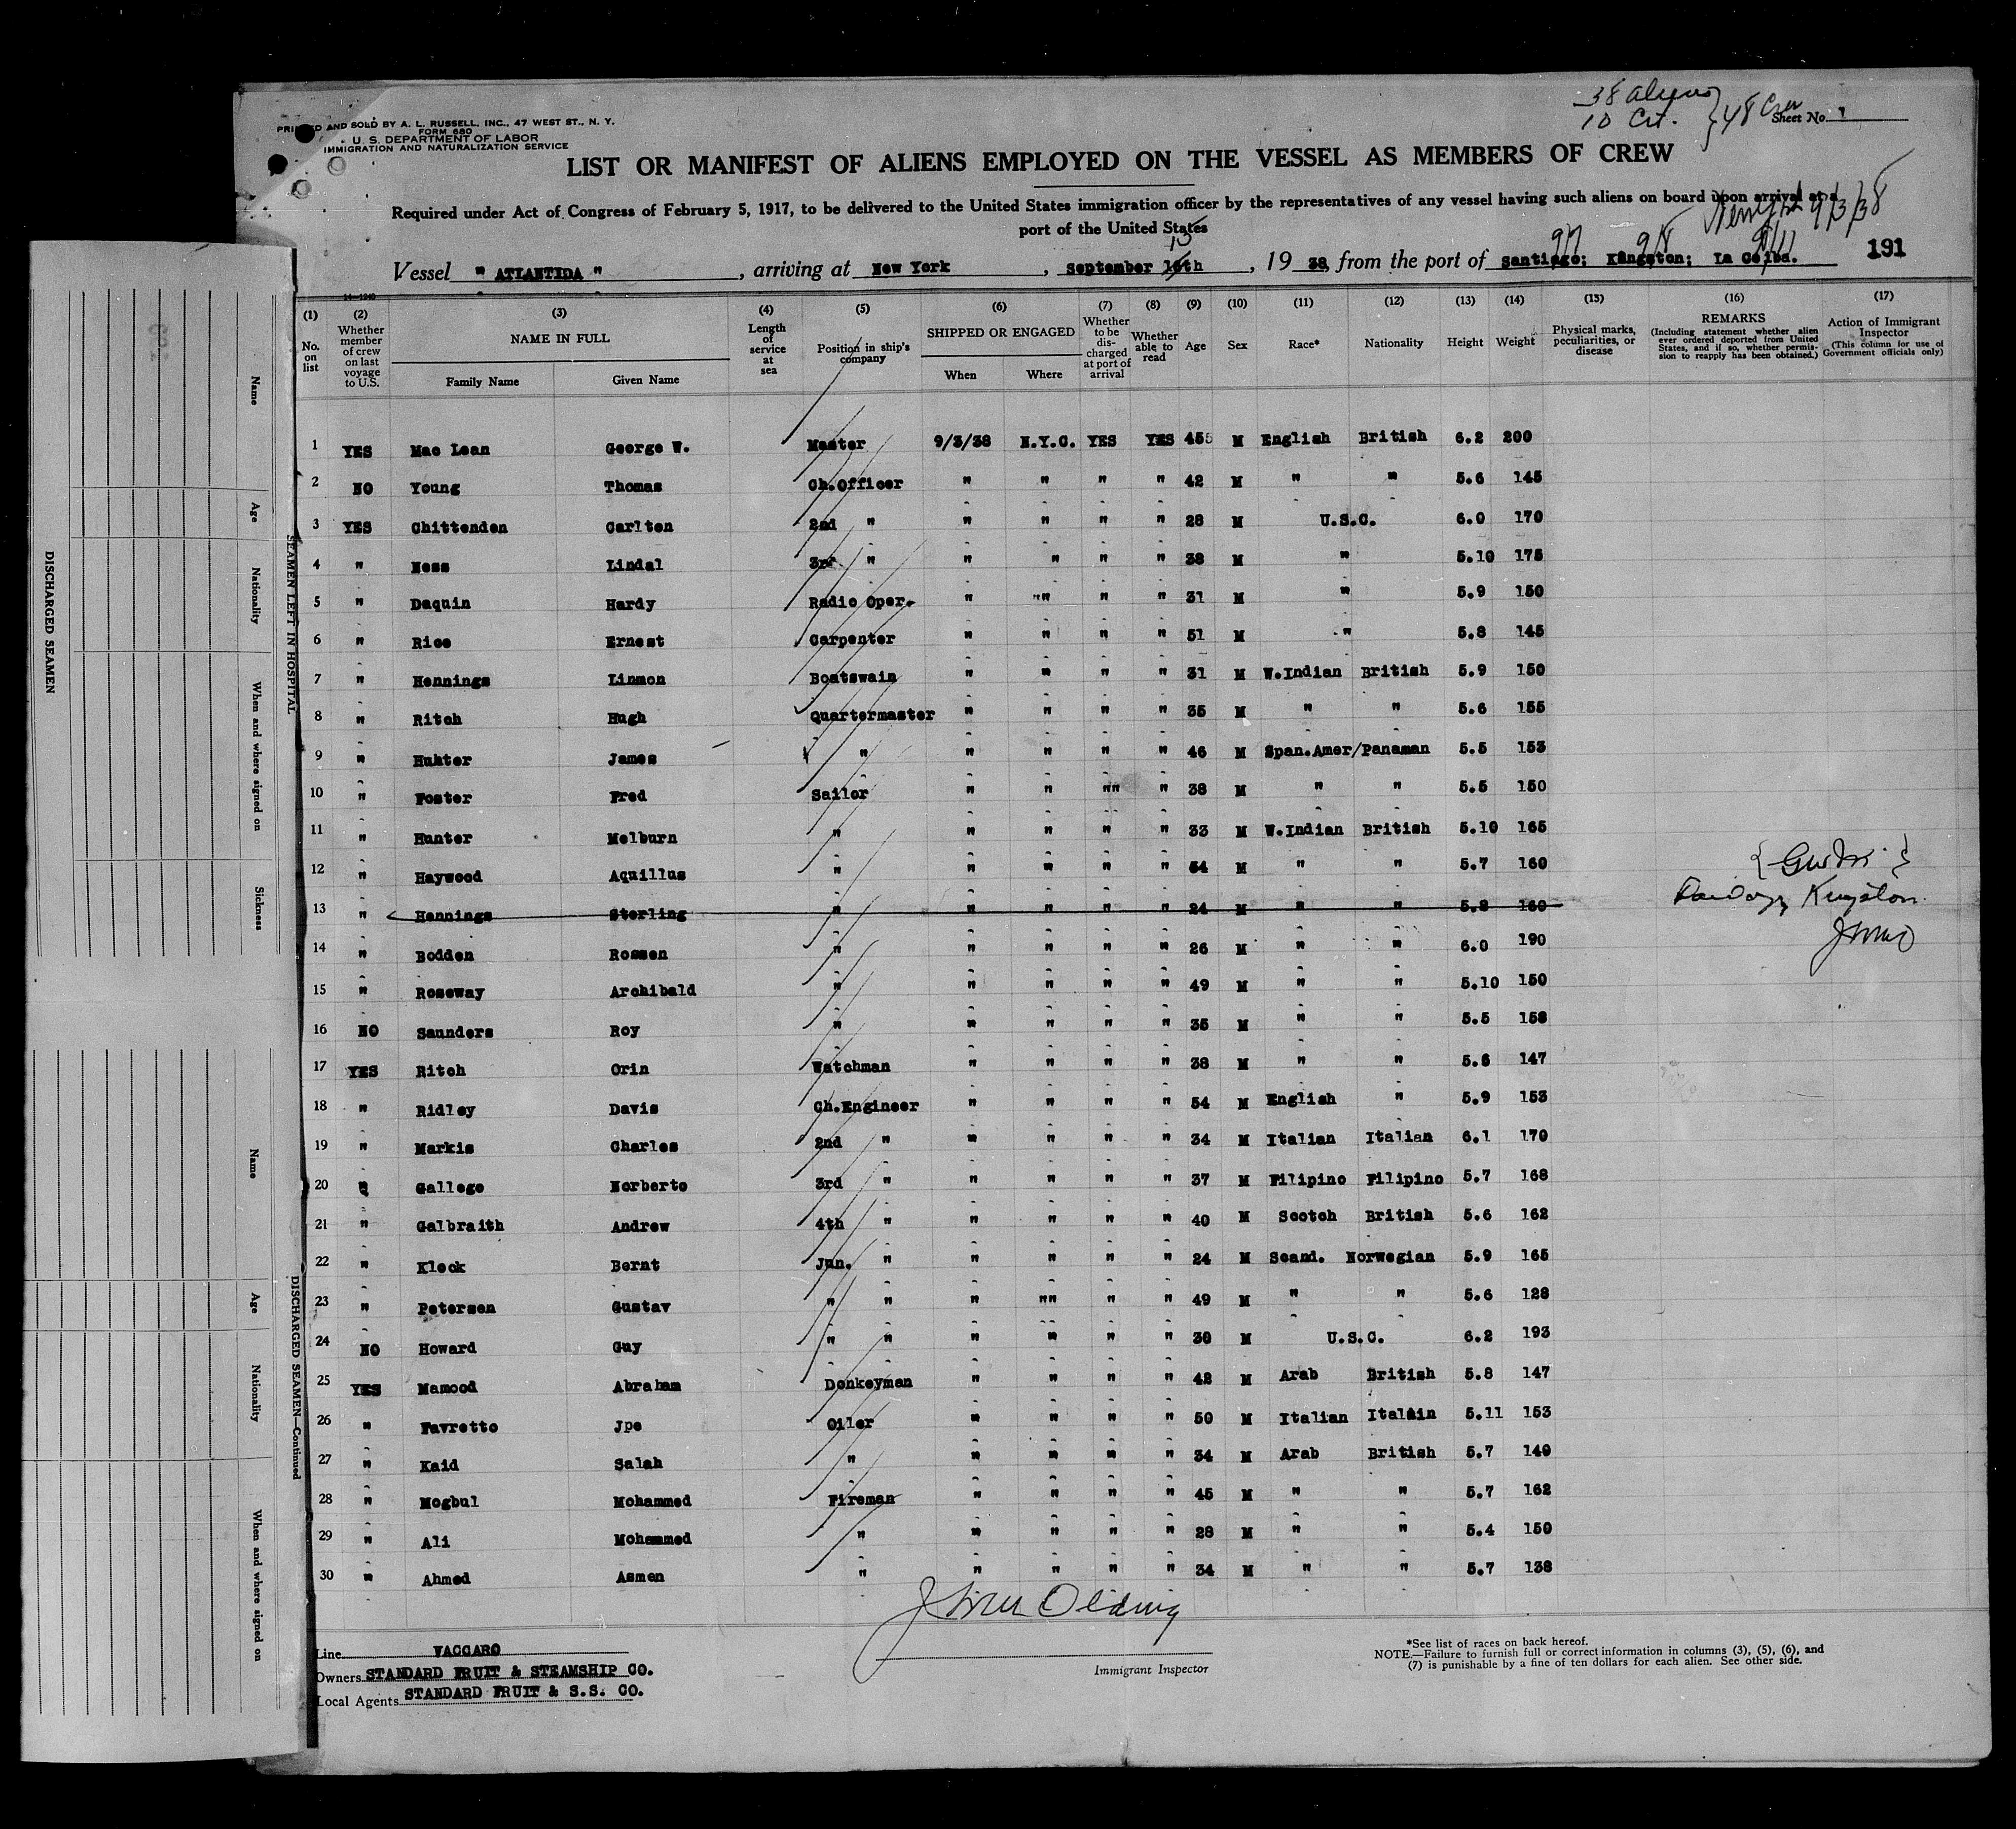 38 aliens
10 Cit. } 48 Crew
PRINTED AND SOLD BY A. L. RUSSELL, INC., 47 WEST ST., N. Y.
FORM 680
U. S. DEPARTMENT OF LABOR
IMMIGRATION AND NATURALIZATION SERVICE
Sheet No. 1
LIST OR MANIFEST OF ALIENS EMPLOYED ON THE VESSEL AS MEMBERS OF CREW
Required under Act of Congress of February 5, 1917, to be delivered to the United States immigration officer by the representatives of any vessel having such aliens on board upon arrival at a
port of the United States
9/3/38
9/7 9/8 9/11
Vessel " ATLANTIDA ", arriving at New York, September 16th, 19 38, from the port of Santiago; Kingston; La Ceiba. 191
14-1240
(1) No. on list
(2) Whether member of crew on last voyage to U.S.
(3) NAME IN FULL Family Name Given Name
(4) Length of service at sea
(5) Position in ship's company
(6) SHIPPED OR ENGAGED When Where
(7) Whether to be discharged at port of arrival
(8) Whether able to read
(9) Age
(10) Sex
(11) Race*
(12) Nationality
(13) Height
(14) Weight
(15) Physical marks, peculiarities, or disease
(16) REMARKS (Including statement whether alien ever ordered deported from United States, and if so, whether permission to reapply has been obtained.)
(17) Action of Immigrant Inspector (This column for use of Government officials only)
1 YES Mac Lean George W. Master 9/3/38 N.Y.C. YES YES 45 M English British 6.2 200
2 NO Young Thomas Ch.Officer " " " " 42 M " " 5.6 145
3 YES Chittenden Carlton 2nd " " " " " 28 M U.S.C. 6.0 170
4 " Ness Lindal 3rd " " " " " 38 M " 5.10 175
5 " Daquin Hardy Radio Oper. " "" " " 31 M " 5.9 150
6 " Rice Ernest Carpenter " " " " 51 M " 5.8 145
7 " Hennings Linmon Boatswain " " " " 31 M W.Indian British 5.9 150
8 " Ritch Hugh Quartermaster " " " " 35 M " " 5.6 155
9 " Hunter James " " " " " 46 M Span.Amer/Panaman 5.5 153
10 " Foster Fred Sailor " " "" " 38 M " " 5.5 150
11 " Hunter Melburn " " " " " 33 M W.Indian British 5.10 165
12 " Haywood Aquillus " " " " " 54 M " " 5.7 160
13 " Hennings Sterling " " " " " 24 M " " 5.8 160 Kingston
14 " Bodden Rossen " " " " " 26 M " " 6.0 190
15 " Roseway Archibald " " " " " 49 M " " 5.10 150
16 NO Saunders Roy " " " " " 35 M " " 5.5 158
17 YES Ritch Orin Watchman " " " " 38 M " " 5.6 147
18 " Ridley Davis Ch.Engineer " " " " 54 M English " 5.9 153
19 " Markis Charles 2nd " " " " " 34 M Italian Italian 6.1 170
20 " Gallego Norberto 3rd " " " " " 37 M Filipino Filipino 5.7 168
21 " Galbraith Andrew 4th " " " " " 40 M Scotch British 5.6 162
22 " Kleck Bernt Jun. " " " " " 24 M Scand. Norwegian 5.9 165
23 " Petersen Gustav " " " "" " " 49 M " " 5.6 128
24 NO Howard Guy " " " " " " 30 M U.S.C. 6.2 193
25 YES Mamood Abraham Donkeyman " " " " 42 M Arab British 5.8 147
26 " Favretto Jpe Oiler " " " " 50 M Italian Italain 5.11 153
27 " Kaid Salah " " " " " 34 M Arab British 5.7 149
28 " Mogbul Mohammed Fireman " " " " 45 M " " 5.7 162
29 " Ali Mohammed " " " " " 28 M " " 5.4 150
30 " Ahmed Asmen " " " " " 34 M " " 5.7 138
Line VACCARO
Owners STANDARD FRUIT & STEAMSHIP CO.
Local Agents STANDARD FRUIT & S.S. CO.
Immigrant Inspector
*See list of races on back hereof.
NOTE.—Failure to furnish full or correct information in columns (3), (5), (6), and
(7) is punishable by a fine of ten dollars for each alien. See other side.
DISCHARGED SEAMEN
SEAMEN LEFT IN HOSPITAL
Name
Age
Nationality
When and where signed on
Sickness
DISCHARGED SEAMEN—Continued
Name
Age
Nationality
When and where signed on